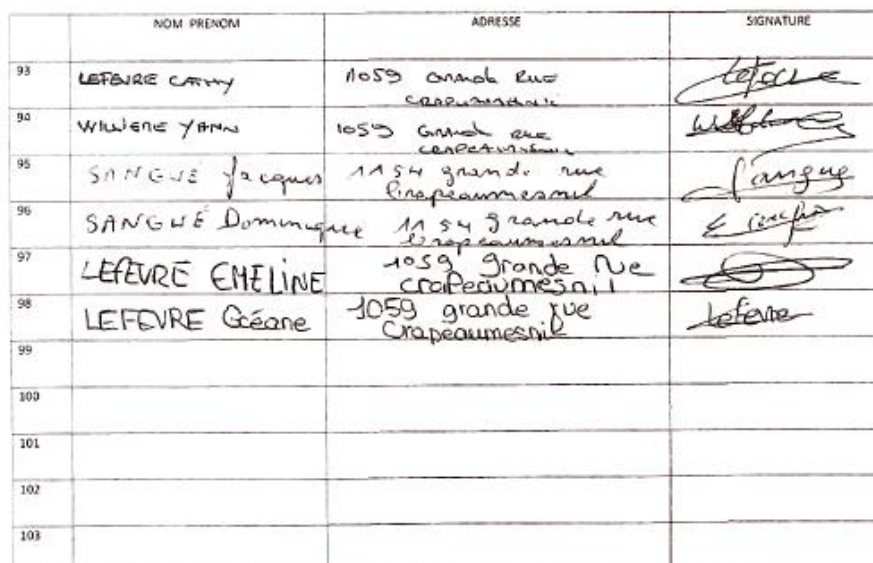 NOM PRENOM ADRESSE SIGNATURE
93 LEFEVRE CATHY 1059 Grande Rue
CRAPEAUMESNIL
94 WILLIERE YANN 1059 Grande RUE
CRAPEAUMESNIL
95 SANGUÉ Jacques 1154 grande rue Sangué
Crapeaumesnil
96 SANGUÉ Dominique 1154 grande rue
Crapeaumesnil
97 LEFEVRE EMELINE 1059 Grande Rue
crapeaumesnil
98 LEFEVRE Océane 1059 grande rue Lefevre
Crapeaumesnil
99
100
101
102
103